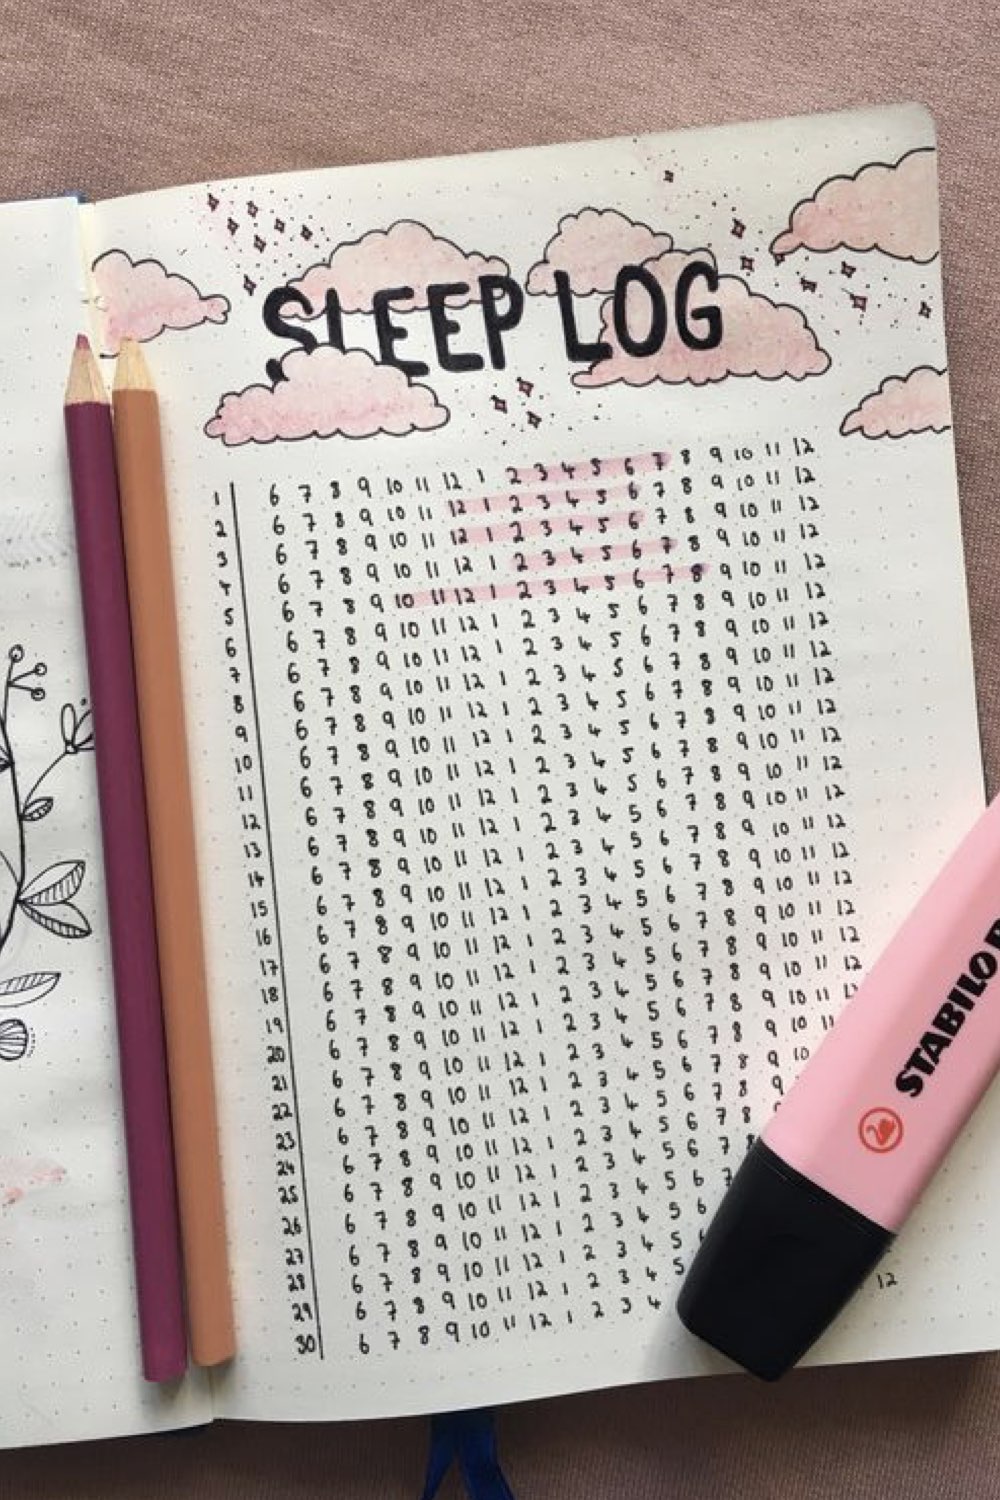 SLEEP LOG
1 6 7 8 9 10 11 12 1 2 3 4 5 6 7 8 9 10 11 12
2 6 7 8 9 10 11 12 1 2 3 4 5 6 7 8 9 10 11 12
3 6 7 8 9 10 11 12 1 2 3 4 5 6 7 8 9 10 11 12
4 6 7 8 9 10 11 12 1 2 3 4 5 6 7 8 9 10 11 12
5 6 7 8 9 10 11 12 1 2 3 4 5 6 7 8 9 10 11 12
6 6 7 8 9 10 11 12 1 2 3 4 5 6 7 8 9 10 11 12
7 6 7 8 9 10 11 12 1 2 3 4 5 6 7 8 9 10 11 12
8 6 7 8 9 10 11 12 1 2 3 4 5 6 7 8 9 10 11 12
9 6 7 8 9 10 11 12 1 2 3 4 5 6 7 8 9 10 11 12
10 6 7 8 9 10 11 12 1 2 3 4 5 6 7 8 9 10 11 12
11 6 7 8 9 10 11 12 1 2 3 4 5 6 7 8 9 10 11 12
12 6 7 8 9 10 11 12 1 2 3 4 5 6 7 8 9 10 11 12
13 6 7 8 9 10 11 12 1 2 3 4 5 6 7 8 9 10 11 12
14 6 7 8 9 10 11 12 1 2 3 4 5 6 7 8 9 10 11 12
15 6 7 8 9 10 11 12 1 2 3 4 5 6 7 8 9 10 11 12
16 6 7 8 9 10 11 12 1 2 3 4 5 6 7 8 9 10 11 12
17 6 7 8 9 10 11 12 1 2 3 4 5 6 7 8 9 10 11 12
18 6 7 8 9 10 11 12 1 2 3 4 5 6 7 8 9 10 11 12
19 6 7 8 9 10 11 12 1 2 3 4 5 6 7 8 9 10 11 12
20 6 7 8 9 10 11 12 1 2 3 4 5 6 7 8 9 10 11 12
21 6 7 8 9 10 11 12 1 2 3 4 5 6 7 8 9 10 11
22 6 7 8 9 10 11 12 1 2 3 4 5 6 7 8 9 10
23 6 7 8 9 10 11 12 1 2 3 4 5 6 7 8 9
24 6 7 8 9 10 11 12 1 2 3 4 5 6 7 8
25 6 7 8 9 10 11 12 1 2 3 4 5 6 7 8
26 6 7 8 9 10 11 12 1 2 3 4 5 6 7
27 6 7 8 9 10 11 12 1 2 3 4 5 6
28 6 7 8 9 10 11 12 1 2 3 4 5
29 6 7 8 9 10 11 12 1 2 3 4 5
30 6 7 8 9 10 11 12 1 2 3 4 12
STABILO